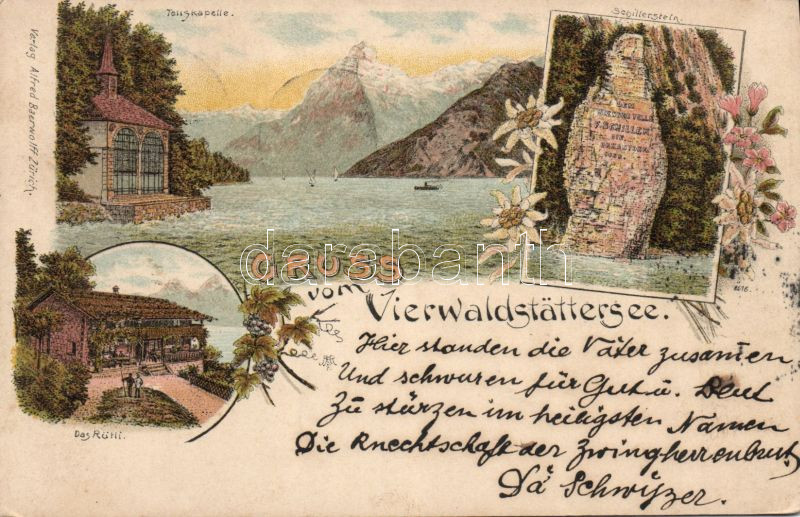 Tellskapelle.
Schillerstein.
Verlag Alfred Baerwolff Zürich.
DEM
F. SCHILLER
1859
GRUSS
vom
Vierwaldstättersee.
darabanth
Das Rütli.
Hier standen die Väter zusamen
Und schwuren für Gut u. Blut
Zu stürzen im heiligsten Namen
Die Knechtschaft der Zwingherrenbrut.
Dä Schwyzer.